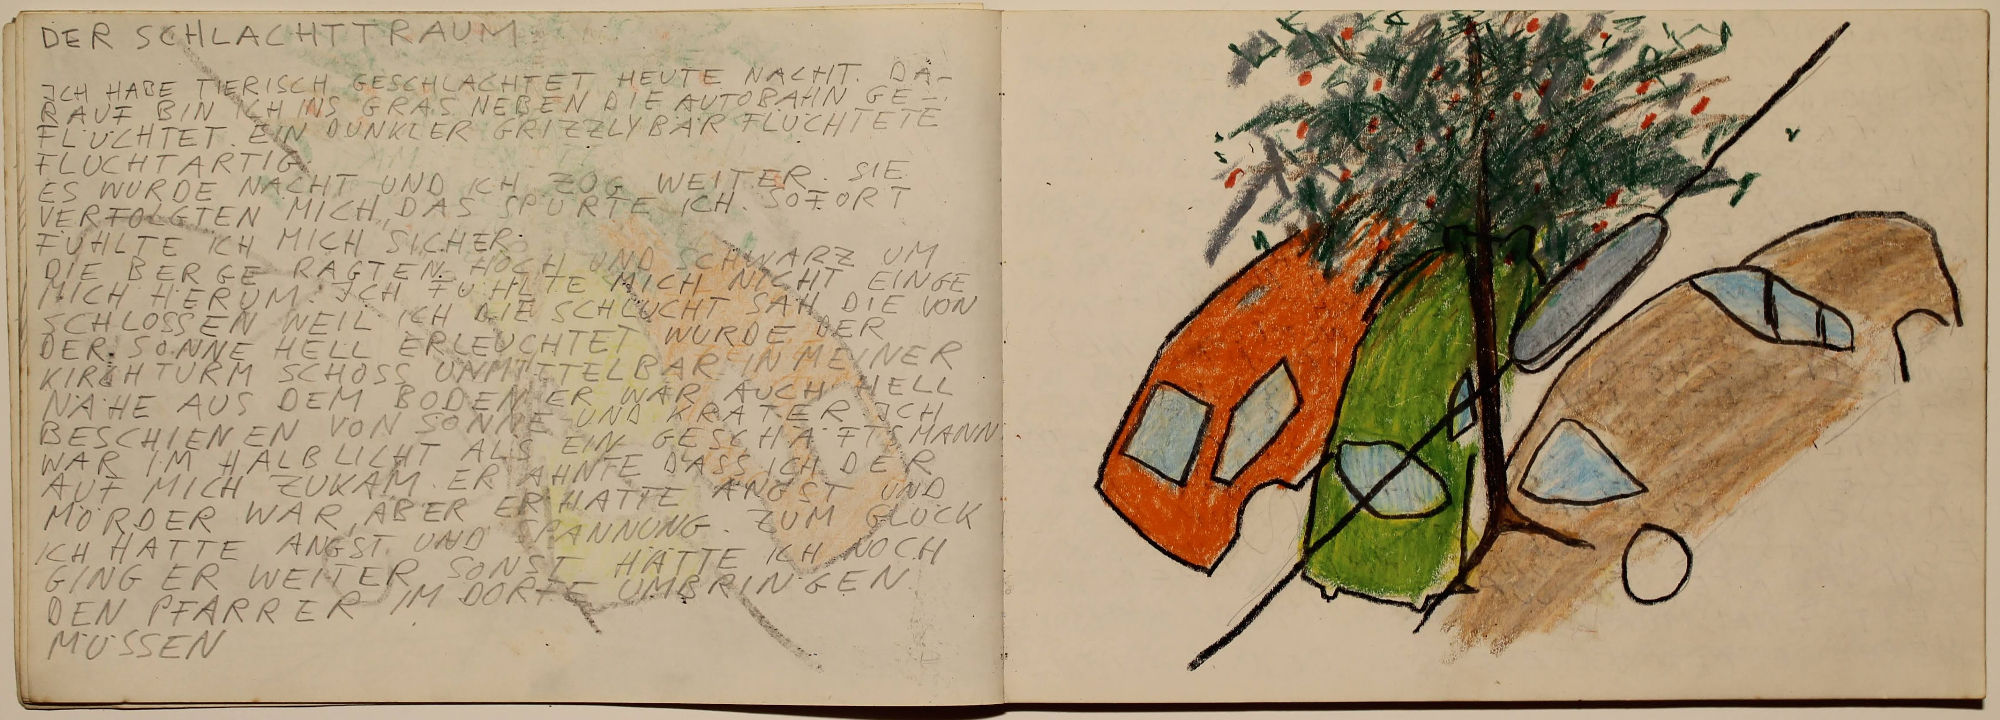 DER SCHLACHTTRAUM.
ICH HABE TIERISCH GESCHLACHTET HEUTE NACHT. DA-
RAUF BIN ICH INS GRAS NEBEN DIE AUTOBAHN GE-
FLÜCHTET. EIN DUNKLER GRIZZLYBÄR FLÜCHTETE
FLUCHTARTIG.
ES WURDE NACHT UND ICH ZOG WEITER. SIE
VERFOLGTEN MICH, DAS SPÜRTE ICH. SOFORT
FÜHLTE ICH MICH SICHER.
DIE BERGE RAGTEN HOCH UND SCHWARZ UM
MICH HERUM. ICH FÜHLTE MICH NICHT EINGE
SCHLOSSEN WEIL ICH DIE SCHLUCHT SAH DIE VON
DER SONNE HELL ERLEUCHTET WURDE DER
KIRCHTURM SCHOSS UNMITTELBAR IN MEINER
NÄHE AUS DEM BODEN ER WAR AUCH HELL
BESCHIENEN VON SONNE UND KRATER ICH
WAR IM HALBLICHT ALS EIN GESCHÄFTSMANN
AUF MICH ZUKAM. ER AHNTE DASS ICH DER
MÖRDER WAR, ABER ER HATTE ANGST UND
ICH HATTE ANGST UND SPANNUNG. ZUM GLÜCK
GING ER WEITER SONST HÄTTE ICH NOCH
DEN PFARRER IM DORFE UMBRINGEN
MÜSSEN